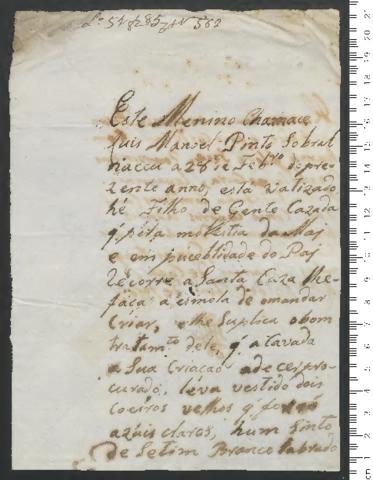 Este Menino Chamace
Luis Manoel Pinto Sobral
nacea a 28 de Feb.ro do pre-
zente anno, está Batizado
hé Filho de Gente Cazada
q' pella molestia da Maj
e em puceblidade do Paj
Récorre a Santa Caza lhe
faça a esmola de o mandar
Criar, e lhe Suplica o bom
tratam.to dele, q' a tavada
a Sua Criaçaó a de cer pro-
curado, leva vestido dois
Coeiros velhos q'
azuis claros, hum Sinto
de Setim Branco Labrado